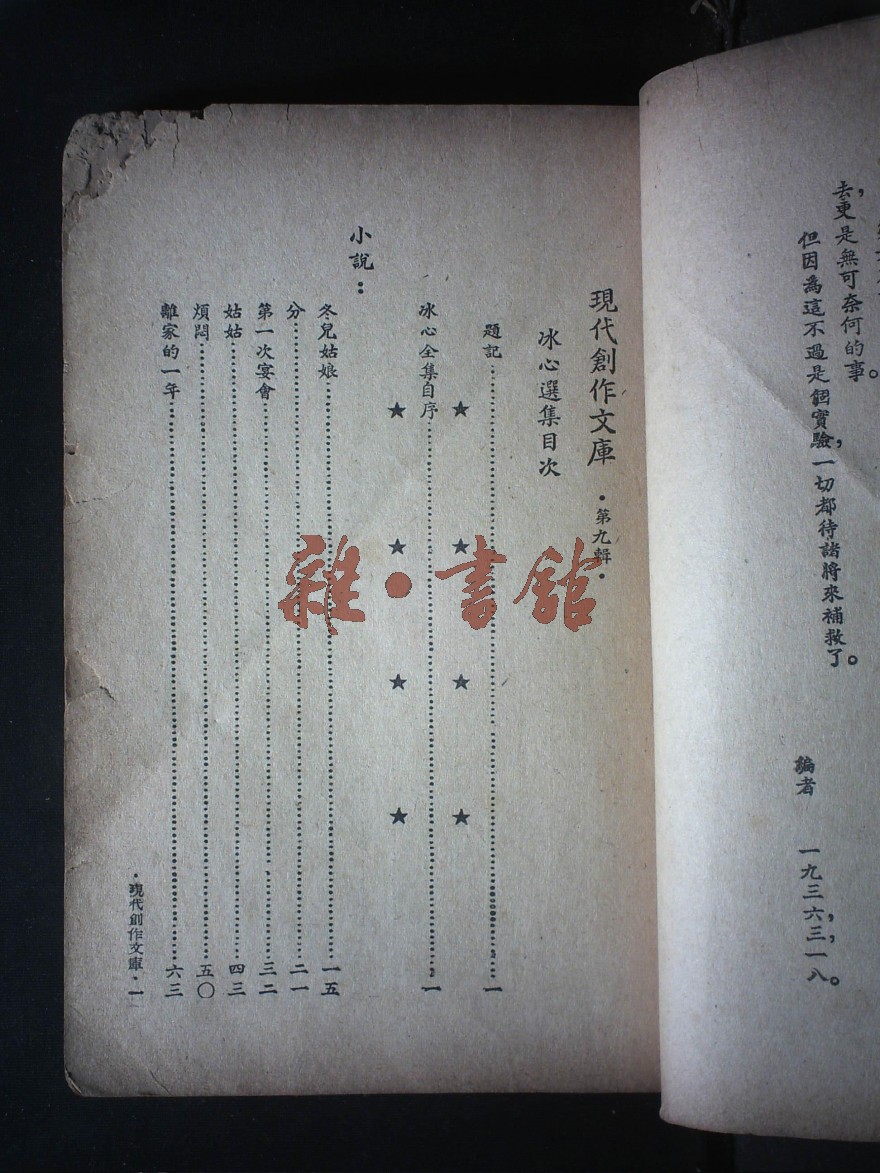 去，更是無可奈何的事。
但因為這不過是個實驗，一切都待諸將來補救了。
編者　一九三六，三，一八。
現代創作文庫・第九輯・
冰心選集目次
題記……一
★★★★
冰心全集自序……一
★★★★
小說：
冬兒姑娘……一五
分……二一
第一次宴會……三二
姑姑……四三
煩悶……五〇
離家的一年……六三
・現代創作文庫・一
雜・書舘